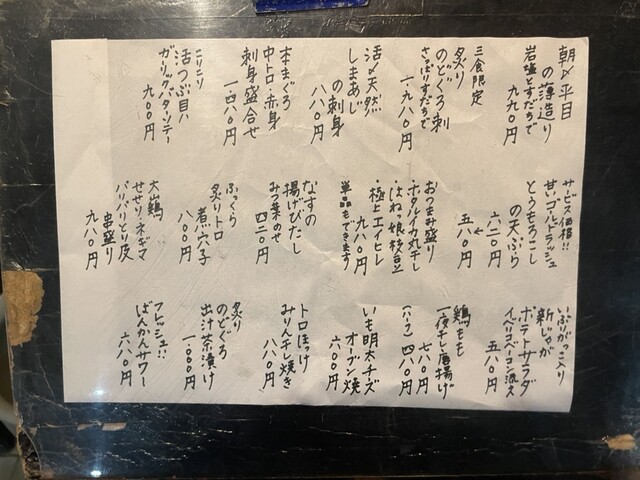 朝〆平目
の薄造り
岩塩とすだちで
九九〇円
三食限定
炙り
のどぐろ刺
さっぱりすだちで
一、九八〇円
活〆天然
しまあじ
の刺身
八八〇円
本まぐろ
中トロ・赤身
刺身盛合せ
一、四八〇円
こりこり
活つぶ貝
ガーリックバターソテー
九〇〇円
サービス価格!!
甘いゴールドラッシュ
とうもろこし
の天ぷら
六二〇円
←
五八〇円
おつまみ盛り
・ホタルイカ丸干し
・はねっ娘枝豆
・極上エイヒレ
九八〇円
単品もできます
なすの
揚げびたし
みつ葉のせ
四二〇円
ふっくら
炙りトロ
煮穴子
八〇〇円
大山鶏
せせり・ネギマ
パリパリとり皮
串盛り
九八〇円
いぶりがっこ入り
新じゃが
ポテトサラダ
イベリコベーコン添え
五八〇円
鶏もも
一夜干し唐揚げ
七八〇円
(ハーフ)四八〇円
いも明太チーズ
オーブン焼
六〇〇円
トロほっけ
みりん干し焼き
八八〇円
炙り
のどぐろ
出汁茶漬け
一、〇〇〇円
フレッシュ!!
ばんかんサワー
六八〇円